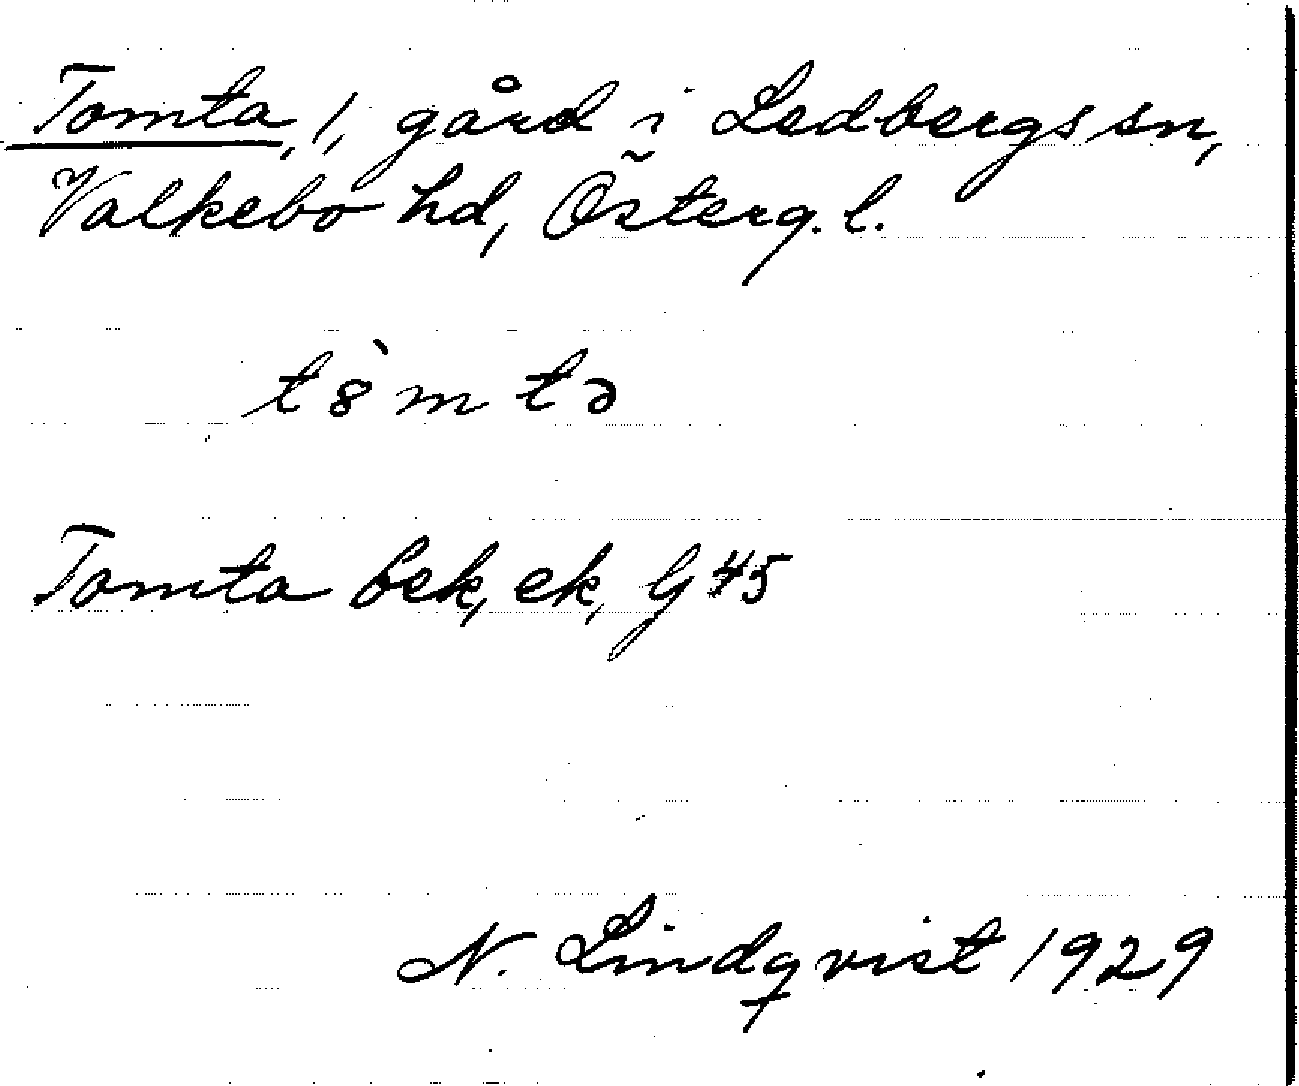 Tomta, 1, gård i Ledbergs sn,
Valkebo hd, Österg. l.
t8̀mtə
Tomta bek, ek, G 45
N. Lindqvist 1929